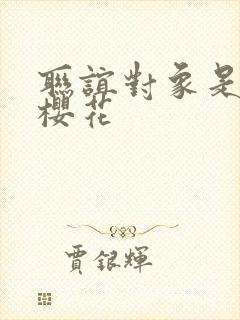 聯誼對象是
櫻花
賈銀輝